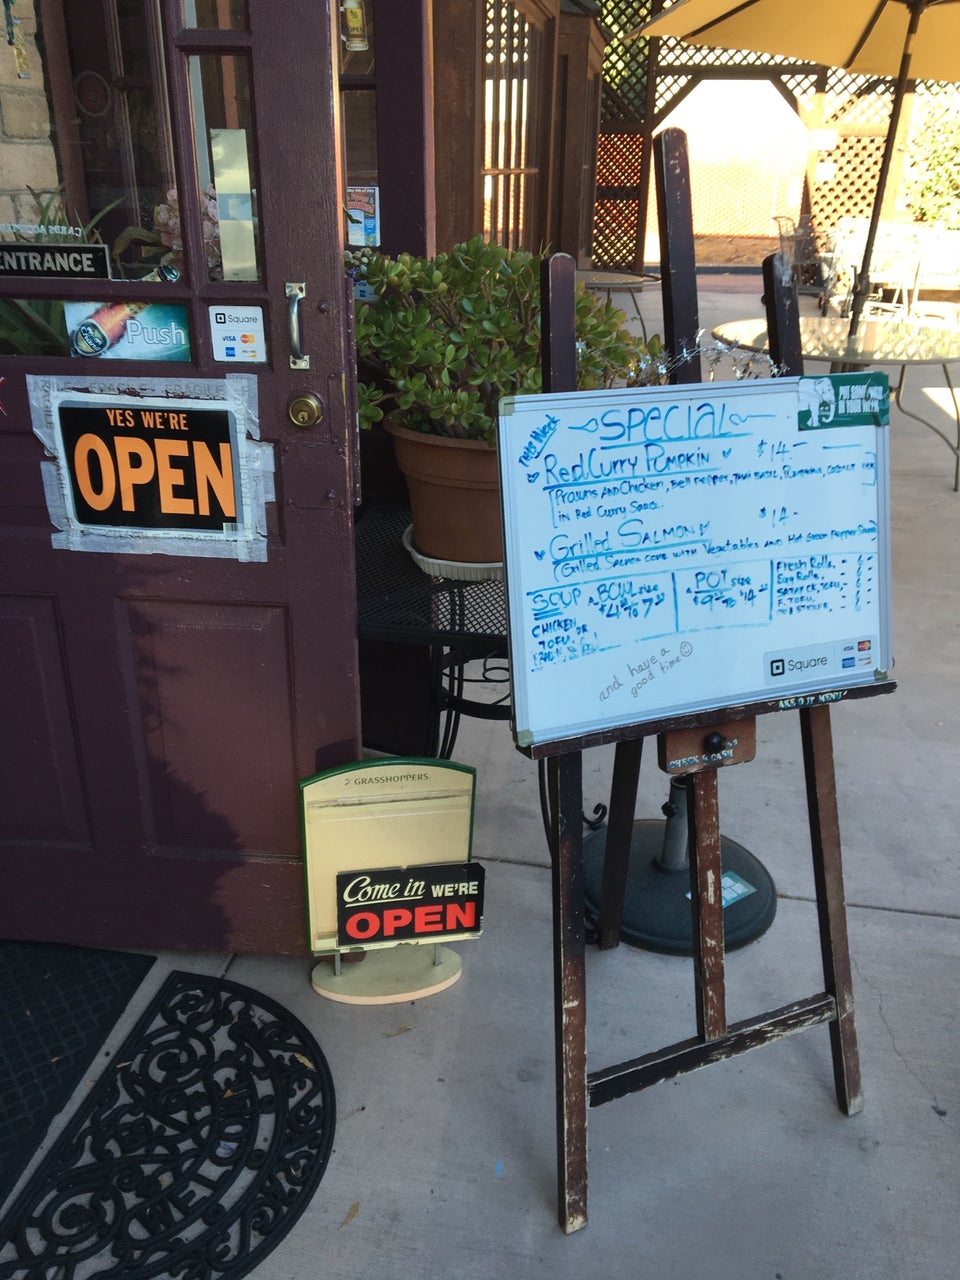 OPEN
ENTRANCE
Push
Square
VISA
YES WE'RE
OPEN
FRAGILE
This Week
SPECIAL
Red Curry Pumpkin $14.-
(Prawns and Chicken, Bell Pepper, Thai Basil, Pumpkins, Coconut
in Red Curry Sauce.
Grilled Salmon $14-
(Grilled Salmon come with Vegetables and Hot Green Pepper Sauce)
SOUP A BOWL size
$4 to 7
CHICKEN,
TOFU, or
POT size
$9 to $14
Fresh Rolls, - 6
Egg Rolls, - 6
SATAY CK, TOFU, - 6
F. TOFU, - 6
and have a
good time
Square
VISA
TAKE OUT MENU
CHECK & CASH
GRASSHOPPERS
Come in WE'RE
OPEN
WELCOME